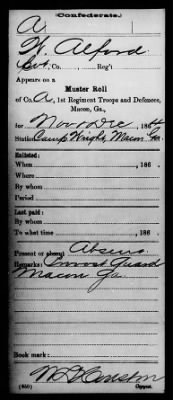 (Confederate.)
A
W. Alford
Pvt, Co. , Reg't
Appears on a
Muster Roll
of Co. A, 1st Regiment Troops and Defences,
Macon, Ga.,
for Nov & Dec, 1864
Station Camp Wright, Macon Ga.
Enlisted:
When , 186 .
Where
By whom
Period
Last paid:
By whom
To what time , 186 .
Present or absent Absent
Remarks: Provost Guard
Macon Ga
Book mark:
(650) Copyist.